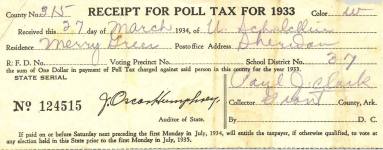 County No. 815 RECEIPT FOR POLL TAX FOR 1933 Color W
Received this 27 day of March 1934, of U.
Residence Merry Green Postoffice Address Sheridan
R. F. D. No. Voting Precinct No. School District No. 37
the sum of One Dollar in payment of Poll Tax charged against said person in this county for the year 1933.
STATE SERIAL
Paul J. Clark
No 124515 J. Oscar Humphrey, Collector Grant County, Ark.
Auditor of State. By D. C.
If paid on or before Saturday next preceding the first Monday in July, 1934, will entitle the taxpayer, if otherwise qualified, to vote at
any election held in this State prior to the first Monday in July, 1935.